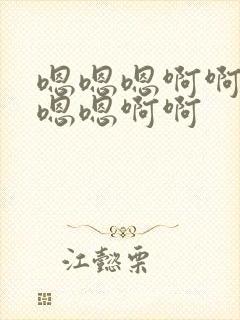 嗯嗯嗯啊啊
嗯嗯啊啊
江懿栗